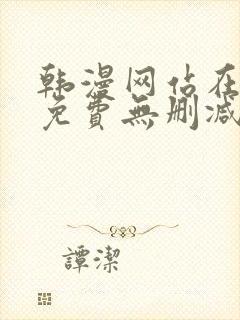 韩漫网站在
免費無删减
譚潔